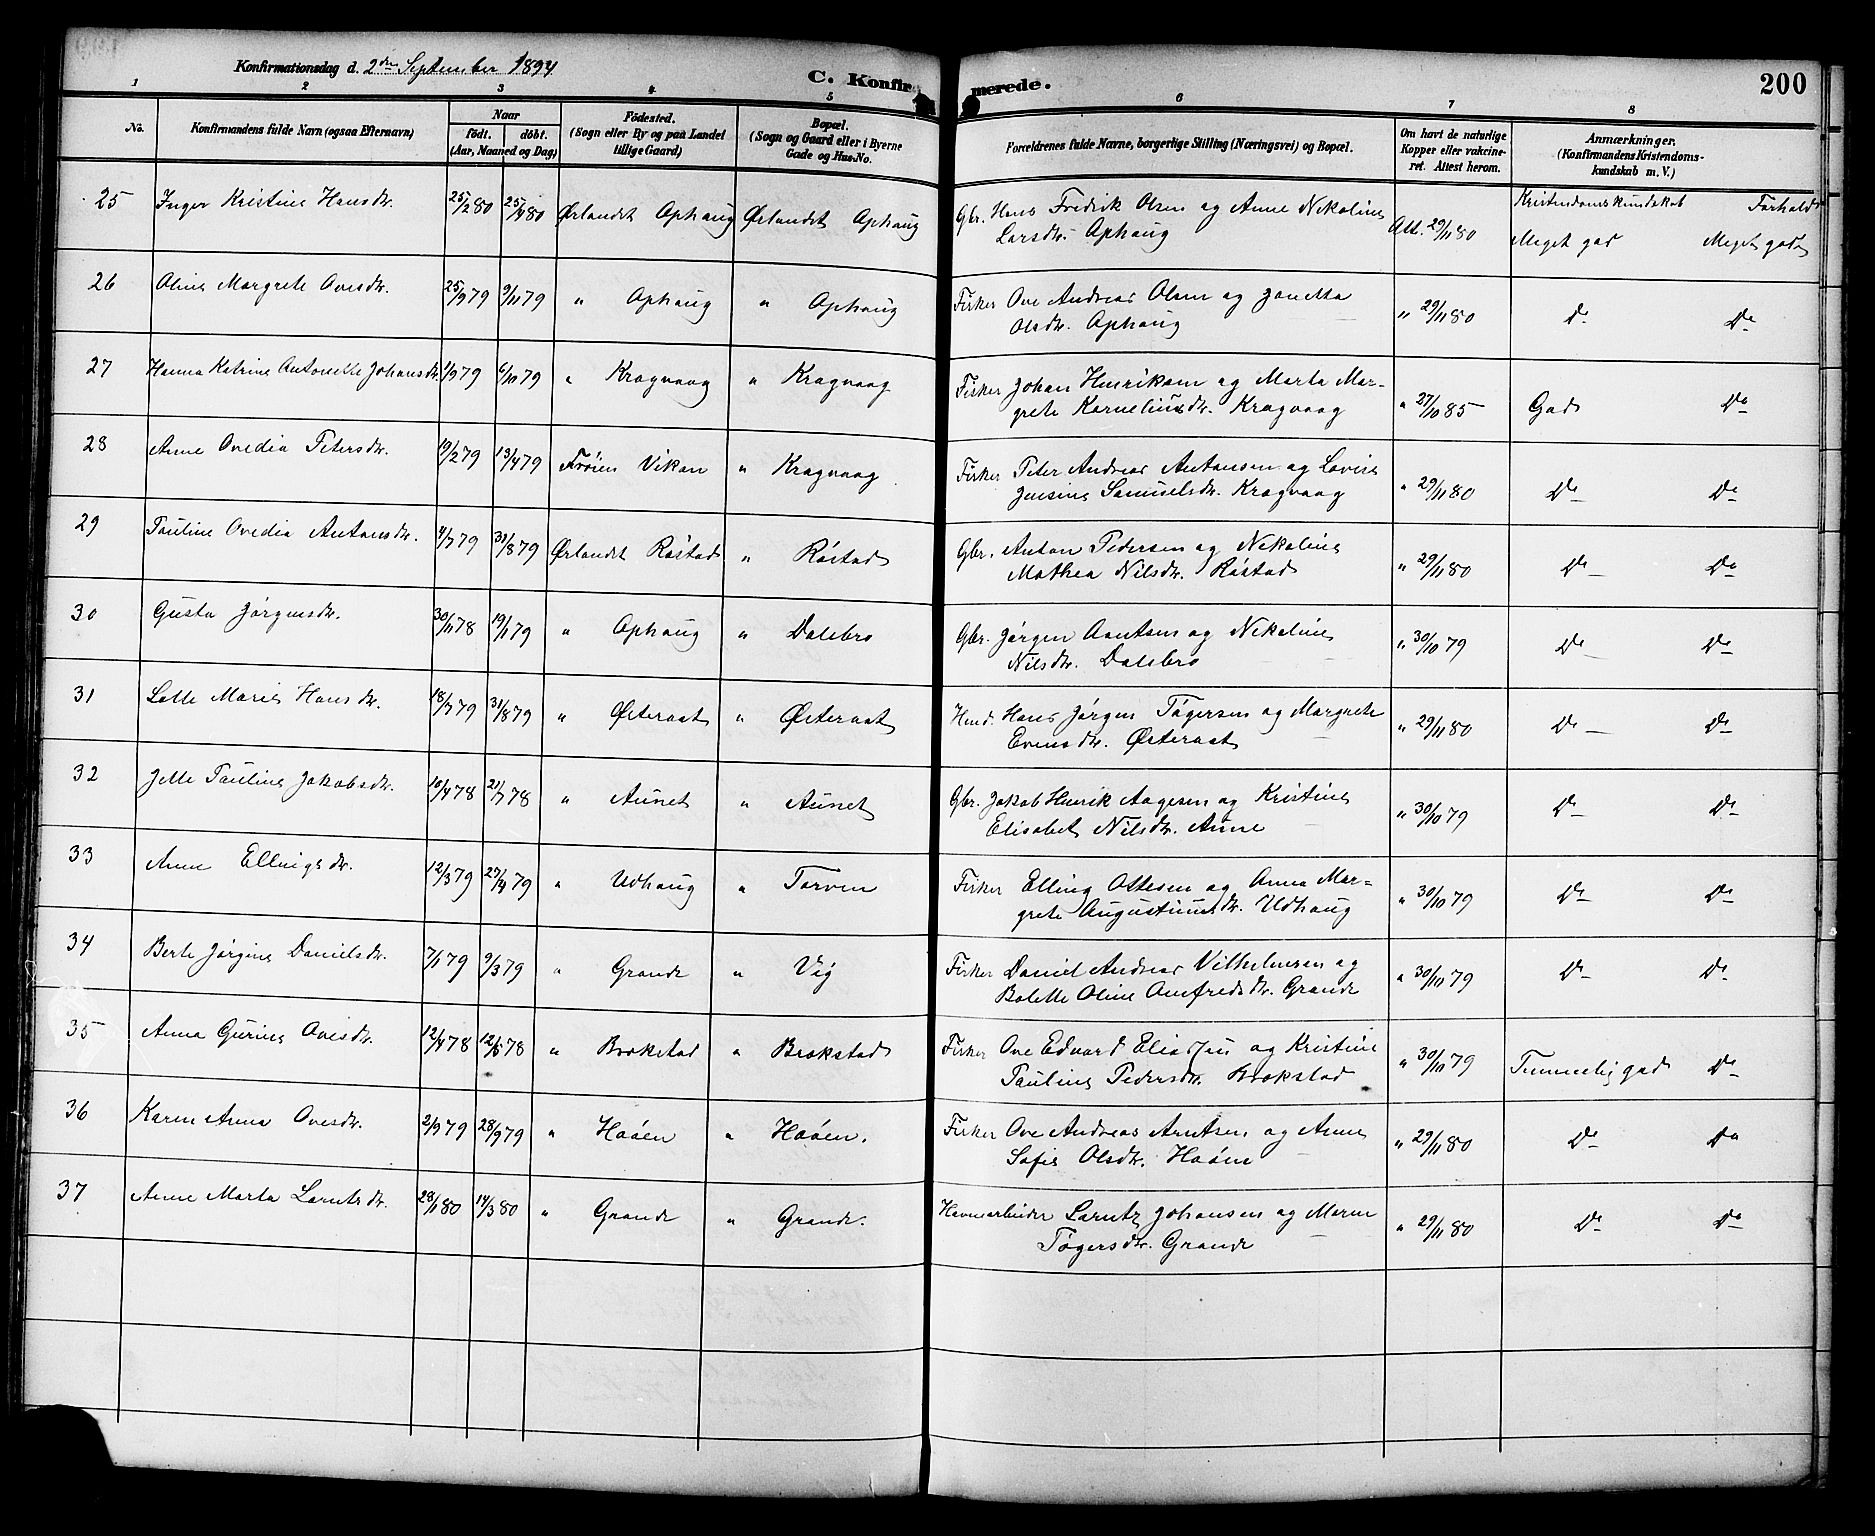 Konfirmationsdag d. 2den September 1894
C. Konfirmerede.
200
1 2 3 4 5 6 7 8
No.
Konfirmandens fulde Navn (ogsaa Efternavn)
Naar
födt. döbt.
(Aar, Maaned og Dag)
Födested.
(Sogn eller By og paa Landet
tillige Gaard)
Bopæl.
(Sogn og Gaard eller i Byerne
Gade og Hus-No.
Forældrenes fulde Navne, borgerlige Stilling (Næringsvei) og Bopæl.
Om havt de naturlige
Kopper eller vakcine-
ret. Attest herom.
Anmærkninger.
(Konfirmandens Kristendoms-
kundskab m. V.)
Kristendomskundskab Forhold
25 Inger Kristine Hansdtr. 25/2 80 25/4 80 Ørlandet Ophaug Ørlandet Ophaug Gbr. Hans Fredrik Olsen og Anne Nekoline
Larsdtr. Ophaug Att. 29/11 80 Meget god Meget godt
26 Oline Margrete Ovesdtr. 25/9 79 9/11 79 " Ophaug " Ophaug Fisker Ove Andreas Olsen og Janetta
Olsdtr. Ophaug " 29/11 80 Do Do
27 Hanna Katrine Antonette Johansdtr. 1/9 79 6/10 79 " Kragvaag " Kragvaag Fisker Johan Henriksen og Marta Mar-
grete Korneliusdtr. Kragvaag " 27/10 85 God Do
28 Anne Ovedia Petersdtr. 19/2 79 13/4 79 Frøien Vikan " Kragvaag Fisker Peter Andreas Antonsen og Lovise
Jensine Samuelsdtr. Kragvaag " 29/11 80 Do Do
29 Pauline Ovedia Antonsdtr. 4/7 79 31/8 79 Ørlandet Røstad " Røstad Gbr. Anton Pedersen og Nekoline
Mathea Nilsdtr. Røstad " 29/11 80 Do Do
30 Gusta Jørgensdtr. 30/11 78 19/1 79 " Ophaug " Dalebro Gbr. Jørgen Arntsen og Nekoline
Nilsdtr. Dalebro " 30/10 79 Do Do
31 Lotte Marie Hansdtr. 18/7 79 31/8 79 " Østeraat " Østeraat Hmd. Hans Jørgen Tøgersen og Margrete
Evensdtr. Østeraat " 29/11 80 Do Do
32 Jette Pauline Jakobsdtr. 10/4 78 21/7 78 " Aunet " Aunet Gbr. Jakob Henrik Aagesen og Kristine
Elisabet Nilsdtr. Aune " 30/10 79 Do Do
33 Anne Ellingsdtr. 12/3 79 27/4 79 " Udhaug " Torven Fisker Elling Ottesen og Anna Mar-
grete Augustinusdtr. Udhaug " 30/10 79 Do Do
34 Berte Jørgine Danielsdtr. 7/1 79 9/3 79 " Grande " Vig Fisker Daniel Andreas Vilhelmsen og
Bolette Oline Amfredsdtr. Grande " 30/10 79 Do Do
35 Anna Gurine Ovesdtr. 12/4 78 12/5 78 " Brokstad " Brokstad Fisker Ove Edvard Eliassen og Kristine
Pauline Pedersdtr. Brokstad " 30/10 79 Temmelig god Do
36 Karen Anna Ovesdtr. 2/9 79 28/9 79 " Hoøen " Hoøen. Fisker Ove Andreas Arntsen og Anne
Sofie Olsdtr. Hoøen " 29/11 80 Do Do
37 Anne Marta Lorntsdtr. 28/1 80 14/3 80 " Grande " Grande. Havnearbeider Lorntz Johansen og Maren
Tøgersdtr. Grande " 29/11 80 Do Do